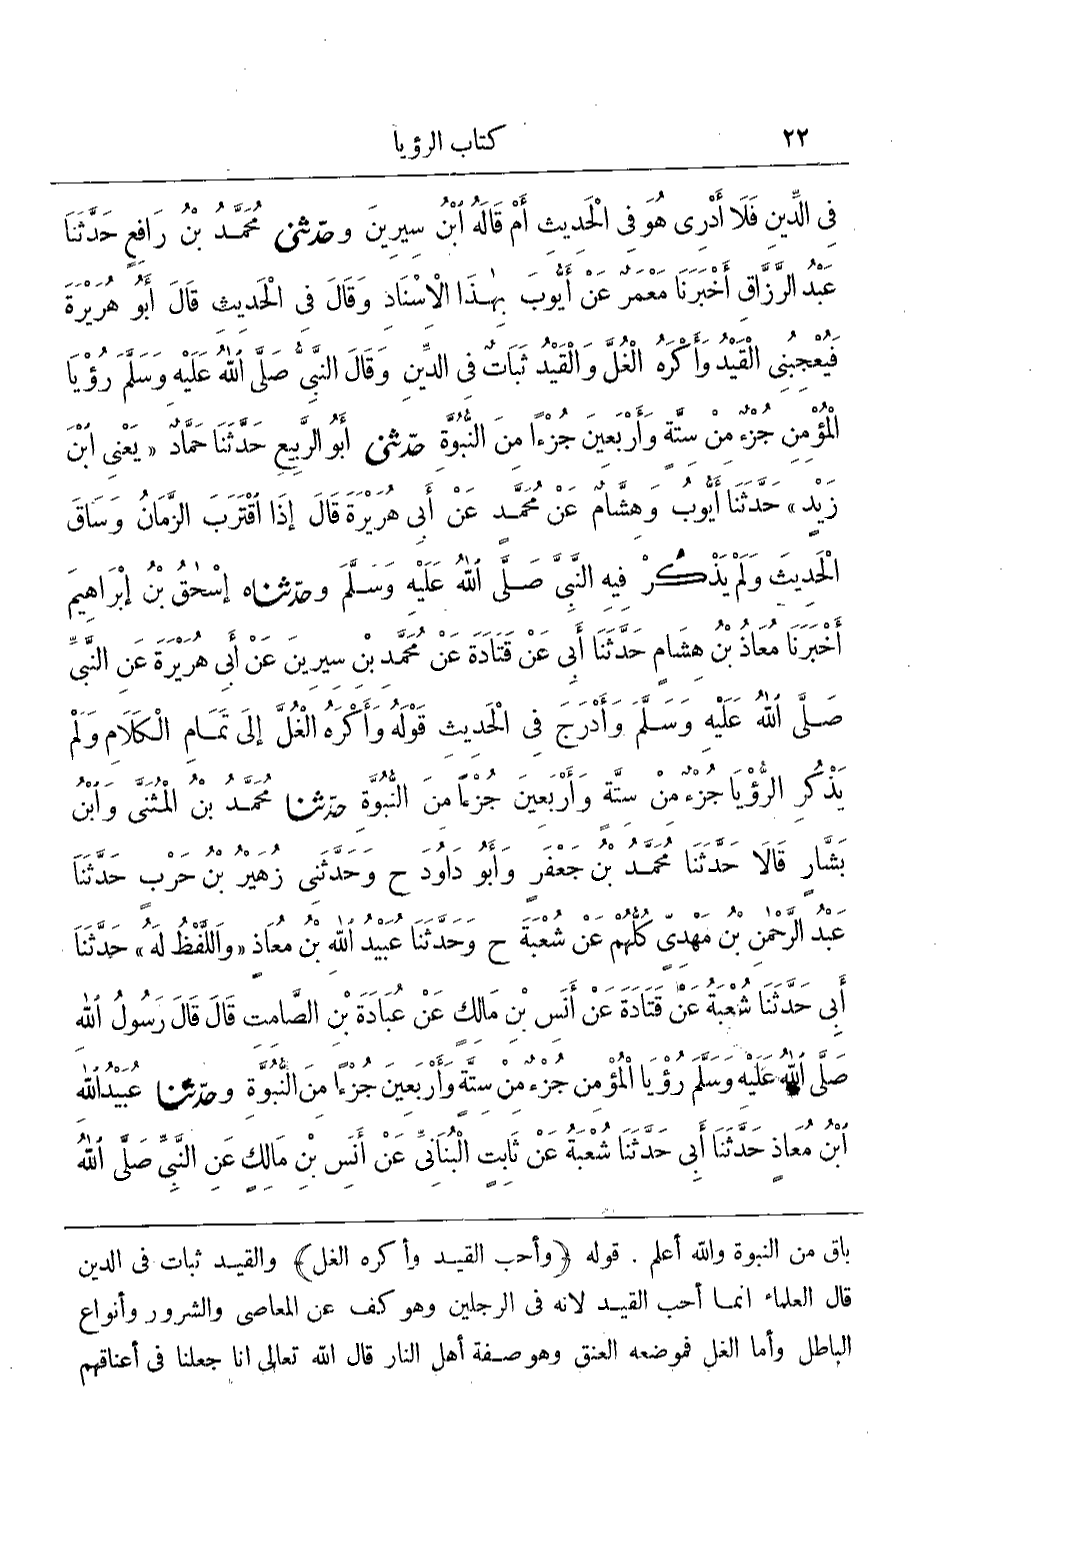 ٢٢ كتاب الرؤيا
فِى الدِّينِ فَلَا أَدْرِى هُوَ فِى الْحَدِيثِ أَمْ قَالَهُ ابْنُ سِيرِينَ وحَدَّثَنِى مُحَمَّدُ بْنُ رَافِعٍ حَدَّثَنَا
عَبْدُ الرَّزَّاقِ أَخْبَرَنَا مَعْمَرٌ عَنْ أَيُّوبَ بِهٰذَا الْاسْنَادِ وَقَالَ فِى الْحَدِيثِ قَالَ أَبُو هُرَيْرَةَ
فَيُعْجِبُنِى الْقَيْدُ وَأَكْرَهُ الْغُلَّ وَالْقَيْدُ ثَبَاتٌ فِى الدِّينِ وَقَالَ النَّبِىُّ صَلَّى اللهُ عَلَيْهِ وَسَلَّمَ رُؤْيَا
الْمُؤْمِنِ جُزْءٌ مِنْ سِتَّةٍ وَأَرْبَعِينَ جُزْءًا مِنَ النُّبُوَّةِ حَدَّثَنِى أَبُو الرَّبِيعِ حَدَّثَنَا حَمَّادٌ «يَعْنِى ابْنَ
زَيْدٍ» حَدَّثَنَا أَيُّوبُ وَهِشَامٌ عَنْ مُحَمَّدٍ عَنْ أَبِى هُرَيْرَةَ قَالَ إِذَا اقْتَرَبَ الزَّمَانُ وَسَاقَ
الْحَدِيثَ وَلَمْ يَذْكُرْ فِيهِ النَّبِىَّ صَلَّى اللهُ عَلَيْهِ وَسَلَّمَ وحَدَّثَنَاه إِسْحٰقُ بْنُ إِبْرَاهِيمَ
أَخْبَرَنَا مُعَاذُ بْنُ هِشَامٍ حَدَّثَنَا أَبِى عَنْ قَتَادَةَ عَنْ مُحَمَّدِ بْنِ سِيرِينَ عَنْ أَبِى هُرَيْرَةَ عَنِ النَّبِىِّ
صَلَّى اللهُ عَلَيْهِ وَسَلَّمَ وَأَدْرَجَ فِى الْحَدِيثِ قَوْلَهُ وَأَكْرَهُ الْغُلَّ إِلَى تَمَامِ الْكَلَامِ وَلَمْ
يَذْكُرِ الرُّؤْيَا جُزْءٌ مِنْ سِتَّةٍ وَأَرْبَعِينَ جُزْءًا مِنَ النُّبُوَّةِ حَدَّثَنَا مُحَمَّدُ بْنُ الْمُثَنَّى وَابْنُ
بَشَّارٍ قَالَا حَدَّثَنَا مُحَمَّدُ بْنُ جَعْفَرٍ وَأَبُو دَاوُدَ ح وَحَدَّثَنِى زُهَيْرُ بْنُ حَرْبٍ حَدَّثَنَا
عَبْدُ الرَّحْمٰنِ بْنُ مَهْدِىٍّ كُلُّهُمْ عَنْ شُعْبَةَ ح وَحَدَّثَنَا عُبَيْدُ اللهِ بْنُ مُعَاذٍ «وَاللَّفْظُ لَهُ» حَدَّثَنَا
أَبِى حَدَّثَنَا شُعْبَةُ عَنْ قَتَادَةَ عَنْ أَنَسِ بْنِ مَالِكٍ عَنْ عُبَادَةَ بْنِ الصَّامِتِ قَالَ قَالَ رَسُولُ اللهِ
صَلَّى اللهُ عَلَيْهِ وَسَلَّمَ رُؤْيَا الْمُؤْمِنِ جُزْءٌ مِنْ سِتَّةٍ وَأَرْبَعِينَ جُزْءًا مِنَ النُّبُوَّةِ وحَدَّثَنَا عُبَيْدُ اللهِ
ابْنُ مُعَاذٍ حَدَّثَنَا أَبِى حَدَّثَنَا شُعْبَةُ عَنْ ثَابِتٍ الْبُنَانِىِّ عَنْ أَنَسِ بْنِ مَالِكٍ عَنِ النَّبِىِّ صَلَّى اللهُ
باق من النبوة والله أعلم . قوله ﴿وأحب القيد وأكره الغل﴾ والقيد ثبات فى الدين
قال العلماء انما أحب القيد لانه فى الرجلين وهو كف عن المعاصى والشرور وأنواع
الباطل وأما الغل فموضعه العنق وهو صفة أهل النار قال الله تعالى انا جعلنا فى أعناقهم